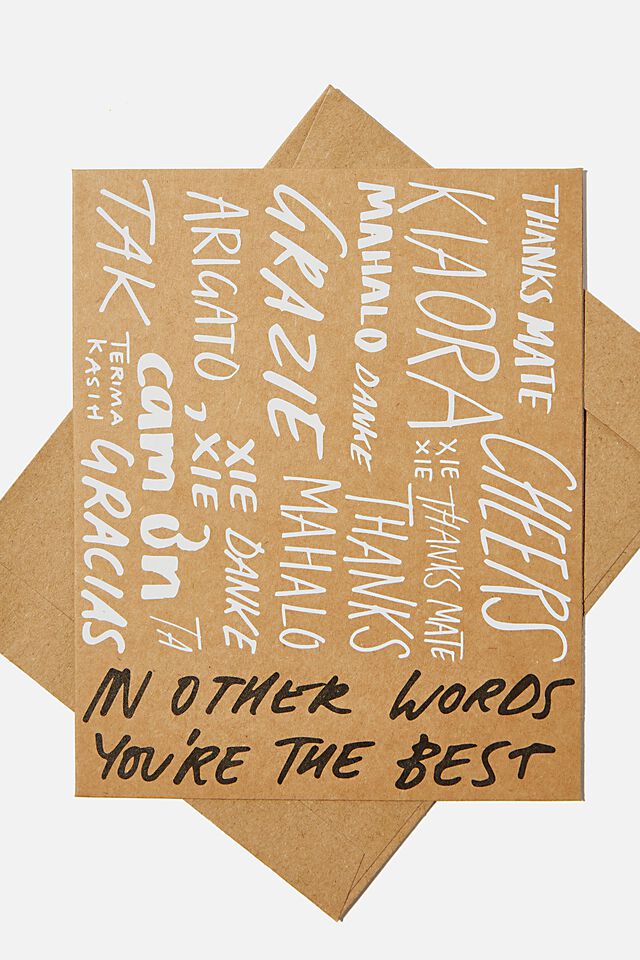 THANKS MATE
CHEERS
KIAORA
XIE
XIE
THANKS MATE
MAHALO
DANKE
THANKS
GRAZIE
MAHALO
ARIGATO
XIE
XIE
DANKE
TAK
cảm ơn
TA
TERIMA
KASIH
GRACIAS
IN OTHER WORDS
YOU'RE THE BEST